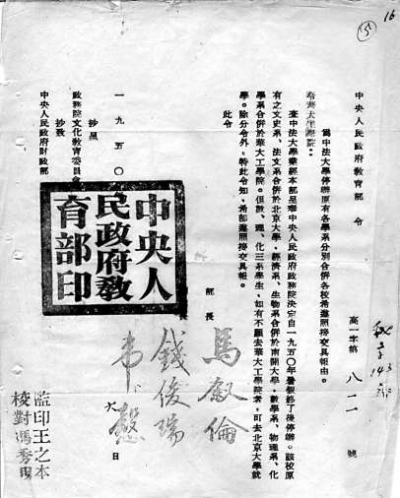 16
5
中央人民政府教育部 令
高一字第 八一一 號
為中法大學停辦原有各學系分別合併各校希遵照接交具報由。
查中法大學業經本部呈奉中央人民政府政務院決定自一九五〇年暑假終了後停辦。該校原
有之文史系、法文系合併於北京大學，經濟系、生物系合併於南開大學，數學系、物理系、化
學系合併於華大工學院。但數、理、化三系學生，如有不願去華大工學院者，可去北京大學就
學。除分令外，特此令知，希卽遵照接交具報。
此令
部長 馬叙倫
長 錢俊瑞
韋慤
一九五〇
日
抄呈
政務院文化教育委員會
抄致
中央人民政府財政部
中央人
民政府教
育部印
監印王之本
校對馮秀